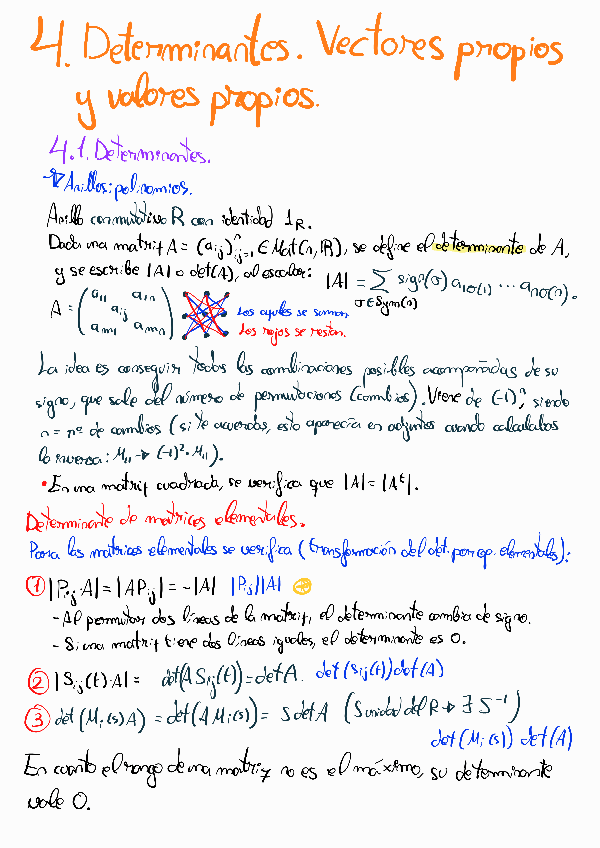 4. Determinantes. Vectores propios
y valores propios.
4.1. Determinantes.
Anillos: polinomios.
Anillo conmutativo R con identidad 1_R.
Dada una matriz A = (a_ij)^n_{i,j=1} ∈ Mat(n, R), se define el determinante de A,
y se escribe |A| o det(A), al escalar: |A| = ∑_{σ∈Sym(n)} sign(σ) a_{1σ(1)} ... a_{nσ(n)}.
A = (a_11 a_1n a_ij a_m1 a_mn)
Los azules se suman
Los rojos se restan.
La idea es conseguir todas las combinaciones posibles acompañadas de su
signo, que sale del número de permutaciones (cambios). Viene de (-1)^n, siendo
n = nº de cambios (si te acuerdas, esto aparecía en adjuntos cuando calculabas
la inversa: M_11 → (-1)^2 · M_11).
• En una matriz cuadrada, se verifica que |A| = |A^t|.
Determinante de matrices elementales.
Para las matrices elementales se verifica (transformación del det. por op. elementales):
① |P_ij · A| = |A P_ij| = -|A| |P_ij||A|
- Al permutar dos líneas de la matriz, el determinante cambia de signo.
- Si una matriz tiene dos líneas iguales, el determinante es 0.
② |S_ij(t) · A| = det(A S_ij(t)) = det A. det(S_ij(t)) det(A)
③ det(M_i(s) A) = det(A M_i(s)) = s det A (S unidad del R → ∃ S^-1)
det(M_i(s)) det(A)
En cuanto el rango de una matriz no es el máximo, su determinante
vale 0.